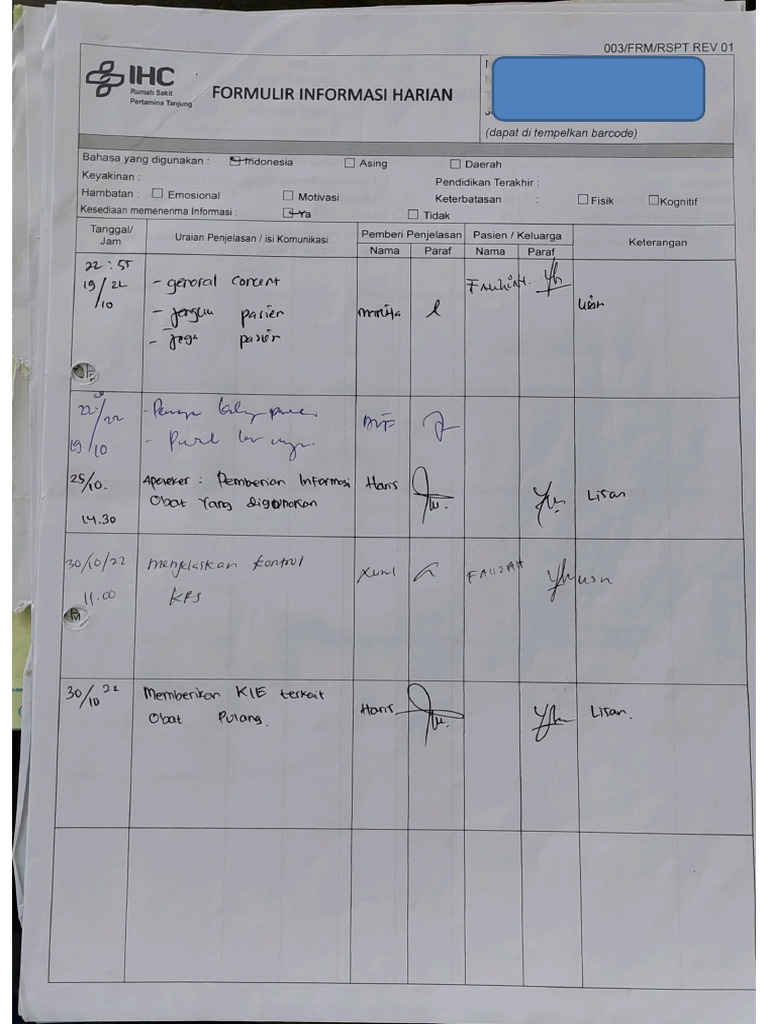 003/FRM/RSPT REV 01
IHC
Rumah Sakit
Pertamina Tanjung
FORMULIR INFORMASI HARIAN
(dapat di tempelkan barcode)
Bahasa yang digunakan : Indonesia Asing Daerah
Keyakinan : Pendidikan Terakhir :
Hambatan : Emosional Motivasi Keterbatasan : Fisik Kognitif
Kesediaan memenerima Informasi : Ya Tidak
Tanggal/ Jam Uraian Penjelasan / isi Komunikasi Pemberi Penjelasan Pasien / Keluarga Keterangan
Nama Paraf Nama Paraf
22:55
19/22
/10
- general concent
- pasien
- pasien
22/22
19/10
25/10.
14.30
Apoteker : Pemberian Informasi
Obat Yang digunakan
Haris
Lisan
30/10/22
11.00
Menjelaskan kontrol
FAUZIAH
30/10 22
Memberikan KIE terkait
Obat Pulang.
Haris
Lisan.